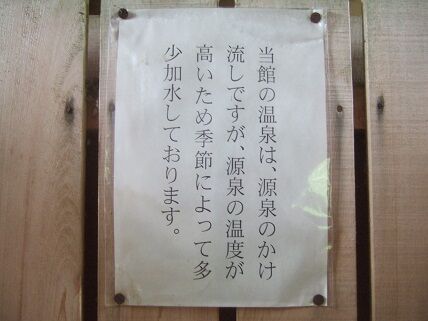 当館の温泉は、源泉のかけ
流しですが、源泉の温度が
高いため季節によって多
少加水しております。